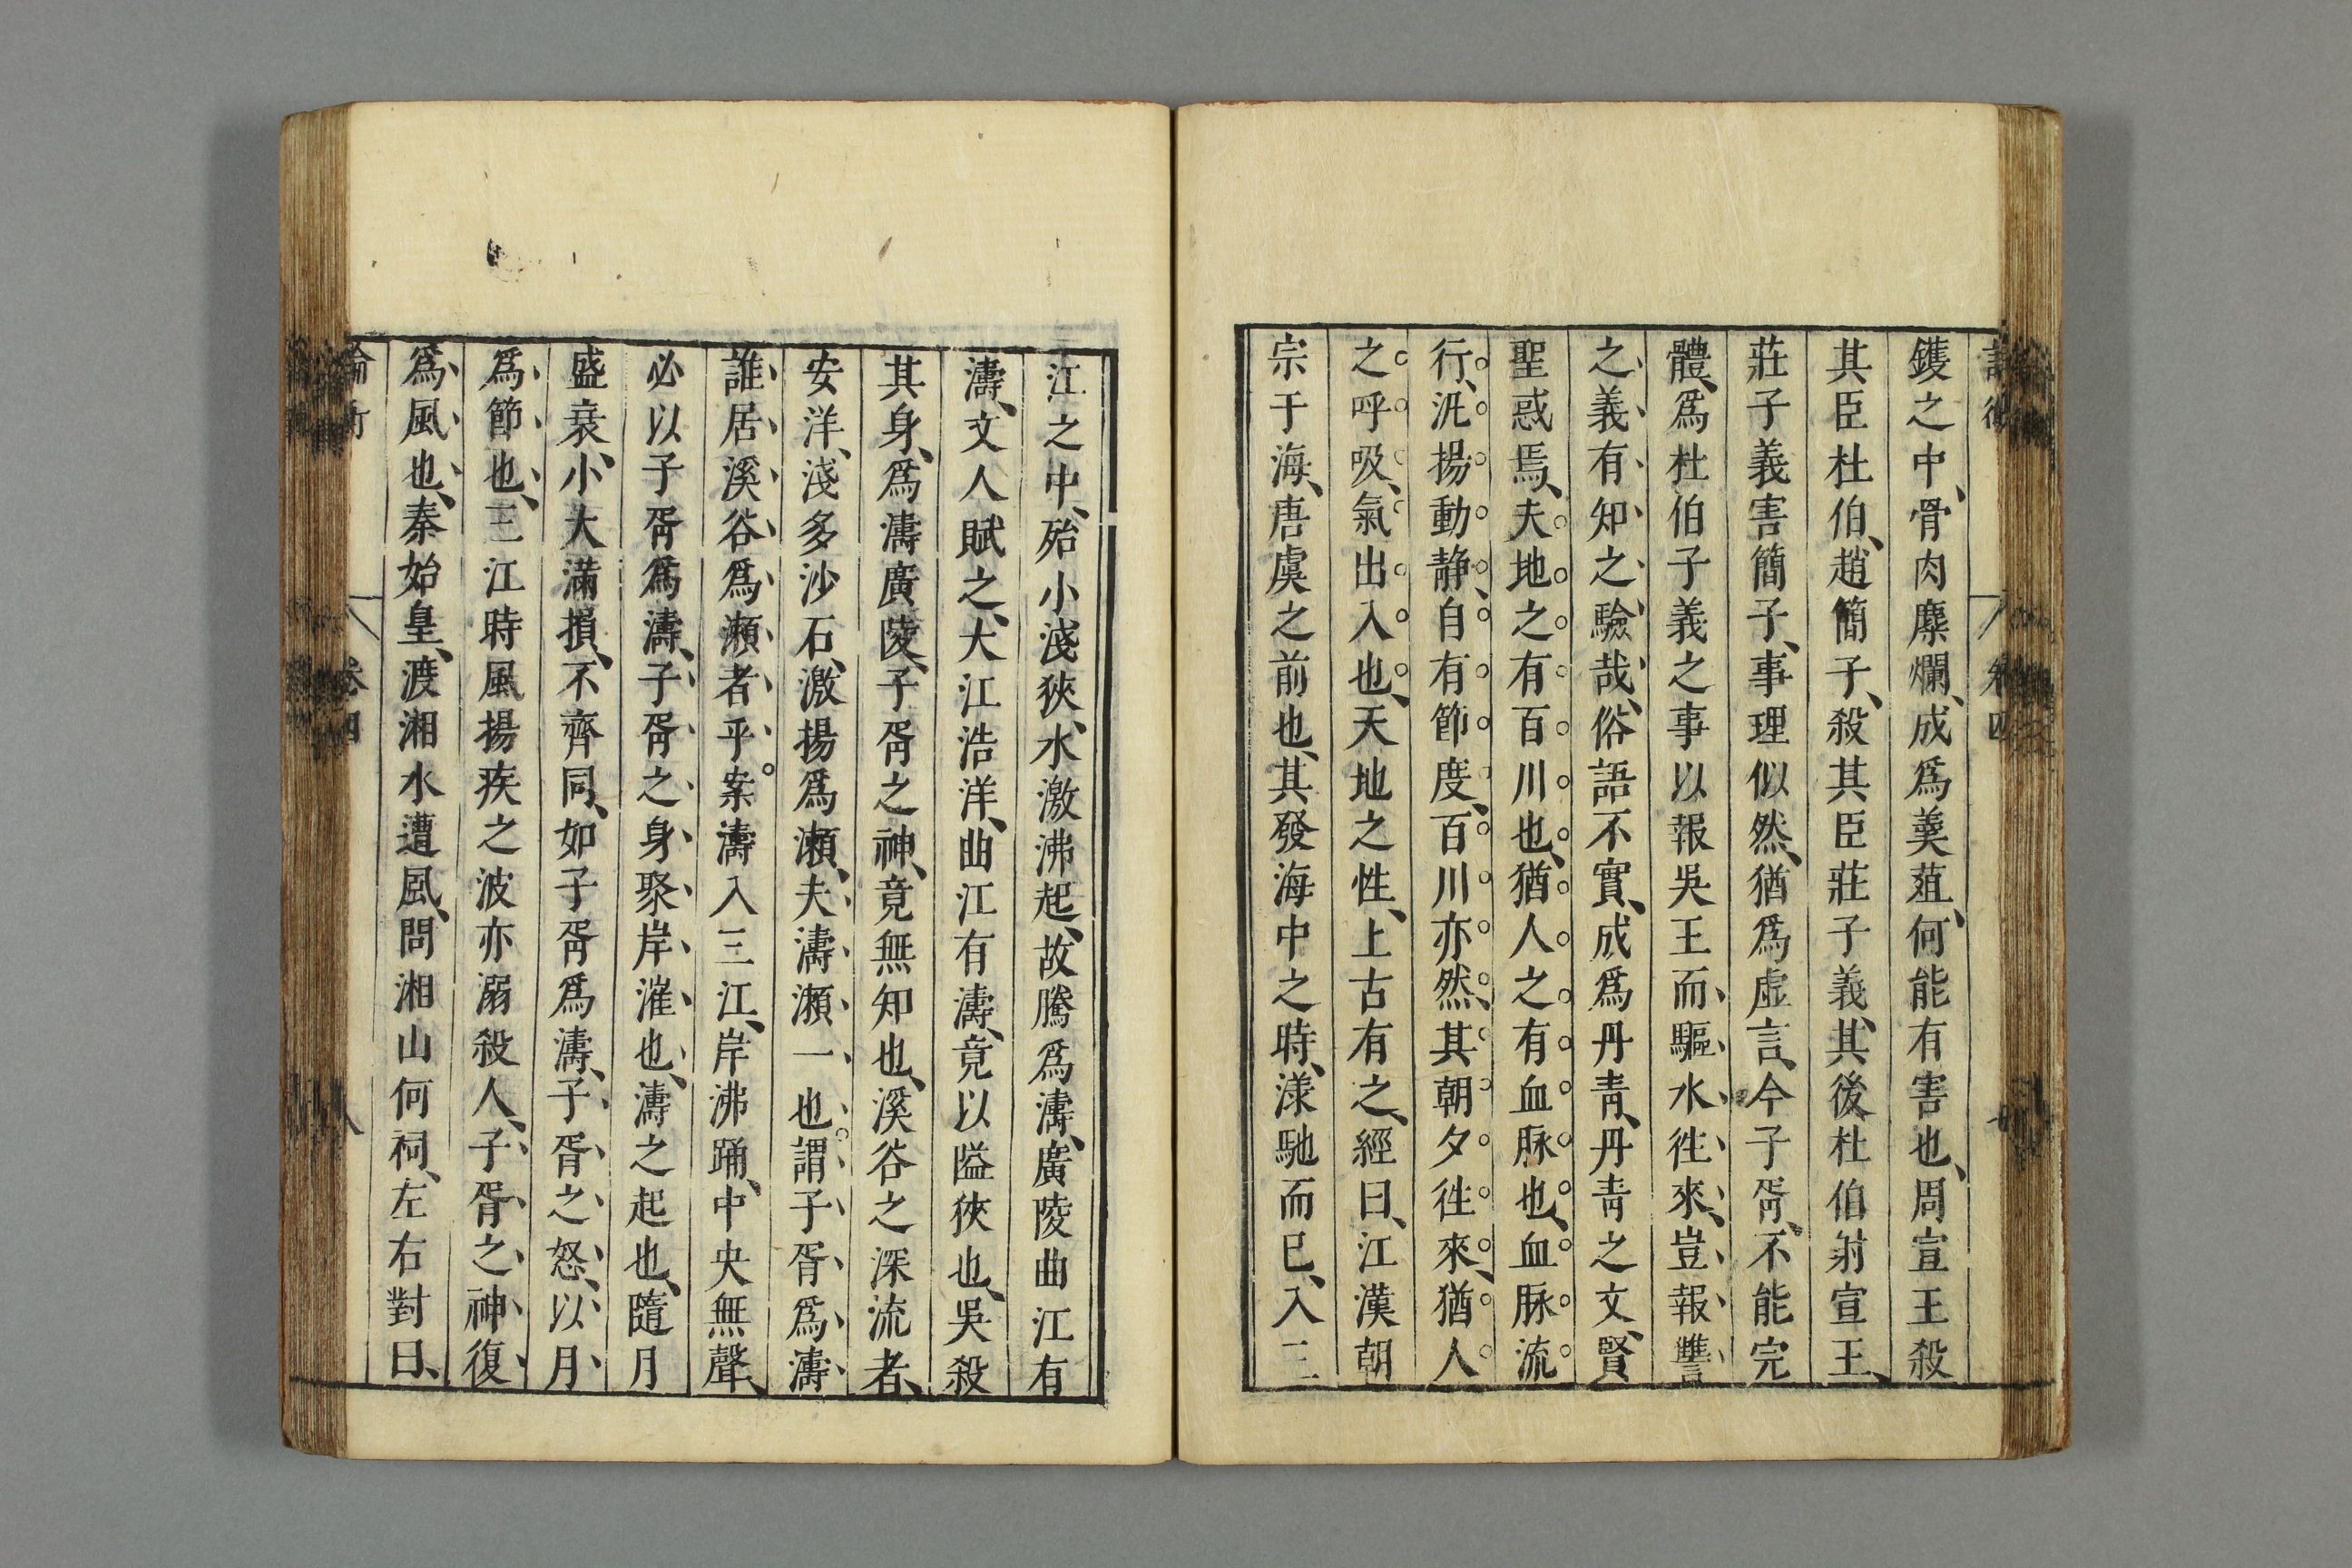 鑊之中、骨肉糜爛、成爲羹葅、何能有害也、周宣王殺
其臣杜伯、趙簡子、殺其臣莊子義、其後杜伯射宣王、
莊子義害簡子、事理似然、猶爲虛言、今子胥、不能完
體、爲杜伯子義之事以報吳王而驅水徃來、豈報讐
之義有知之驗哉、俗語不實、成爲丹青、丹青之文、賢
聖惑焉、夫地之有百川也、猶人之有血脉也、血脉流
行、汎揚動静、自有節度、百川亦然、其朝夕徃來、猶人
之呼吸、氣出入也、天地之性、上古有之、經曰、江漢朝
宗于海、唐虞之前也、其發海中之時、漾馳而已、入三
江之中、殆小淺狹、水激沸起、故騰爲濤、廣陵曲江有
濤、文人賦之、大江浩洋、曲江有濤、竟以隘狹也、吳殺
其身、爲濤廣陵、子胥之神、竟無知也、溪谷之深流者、
安洋、淺多沙石、激揚爲瀨、夫濤瀨一也、謂子胥爲濤
誰居溪谷爲瀨者乎。案濤入三江、岸沸踊、中央無聲、
必以子胥爲濤、子胥之身聚岸漼也、濤之起也、隨月
盛衰、小大滿損、不齊同、如子胥爲濤、子胥之怒、以月
爲節也、三江時風揚疾之波亦溺殺人、子胥之神復
爲風也、秦始皇、渡湘水遭風、問湘山何祠、左右對曰、
論衡 卷四